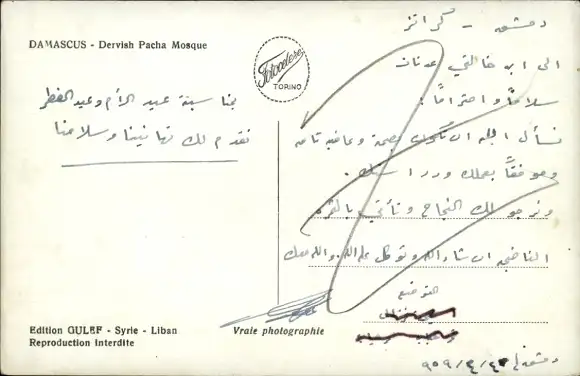 DAMASCUS - Dervish Pacha Mosque
Fotocelere
TORINO
بمناسبة عيد الأم وعيد الفطر
نقدم لك تهانينا وسلامنا
دمشق - كراتز
الى ابن خالتي عدنان
سلاماً واحتراماً:
نسأل الله ان تكون بصحة وعافيه تامه
وموفقاً بعملك ودراستك.
ونرجو لك النجاح وتأتي بالثمره
الناضجه ان شاء الله وتوكل على الله والله معك
التوقيع
دمشق في
Edition GULEF - Syrie - Liban
Reproduction Interdite
Vraie photographie